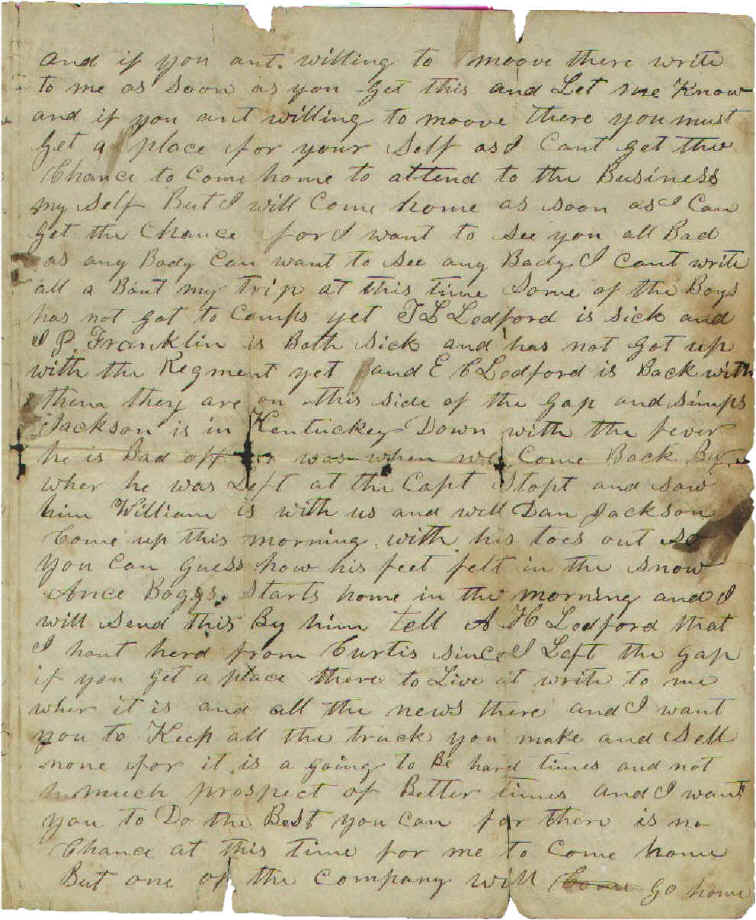 and if you ant. willing to moove there write
to me as soon as you get this and Let me Know
and if you ant willing to moove there you must
get a place for your Self as I Cant get the
Chance to Come home to attend to the Business
my self But I will Come home as soon as I Can
get the Chance for I want to see you all Bad
as any Body Can want to see any Body I Cant write
all a Bout my trip at this time Some of the Boys
has not got to Camps yet T L Ledford is sick and
I P. Franklin is Both sick and has not got up
with the Regment yet and E C Ledford is Back with
them they are on this side of the gap and simps
Jackson is in Kentuckey Down with the fever
he is Bad off or was when we Come Back By
wher he was Left at the Capt Stopt and saw
him William is with us and well Dan Jackson
Come up this morning with his toes out so
you Can guess how his feet felt in the snow
Ance Boggs. Starts home in the morning and I
will send this By him tell A H Ledford that
I hant herd from Curtis since I Left the gap
if you get a place there to Live at write to me
wher it is and all the news there and I want
you to Keep all the truck you make and Sell
none for it is a going to Be hard times and not
much prospect of Better times and I want
you to Do the Best you Can for there is no
Chance at this time for me to Come home
But one of the Company will go home